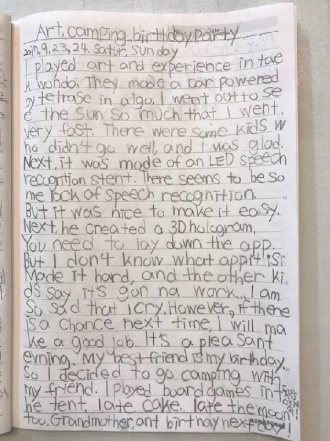 Art, camping, birthday party
2017, 9, 23, 24. Satur, Sunday
I played art and experience in the
wondo. They made a car powered
by tetrase in algo. I went out to se
e the sun so much that I went.
very fast. There were some kids w
ho didn't go well, and I was glad.
Next, it was made of an LED speech
recogtion stent. There seems to be so
me lack of speech recognition.
But it was nice to make it easy.
Next, he created a 3D hologram,
You need to lay down the app.
But I don't know what app it is!
Made it hard, and the other ki
ds say it's gon na work... I am
so sad that I cry. However, if there
is a chance next time, I will ma
ke a good job. It's a pleasant
evrning. My best friend is my birthday.
So I decided to go camping with
my friend. I played board games in t
he tent. I ate cake. I ate the moon
too. Grandmother, ant birthday next